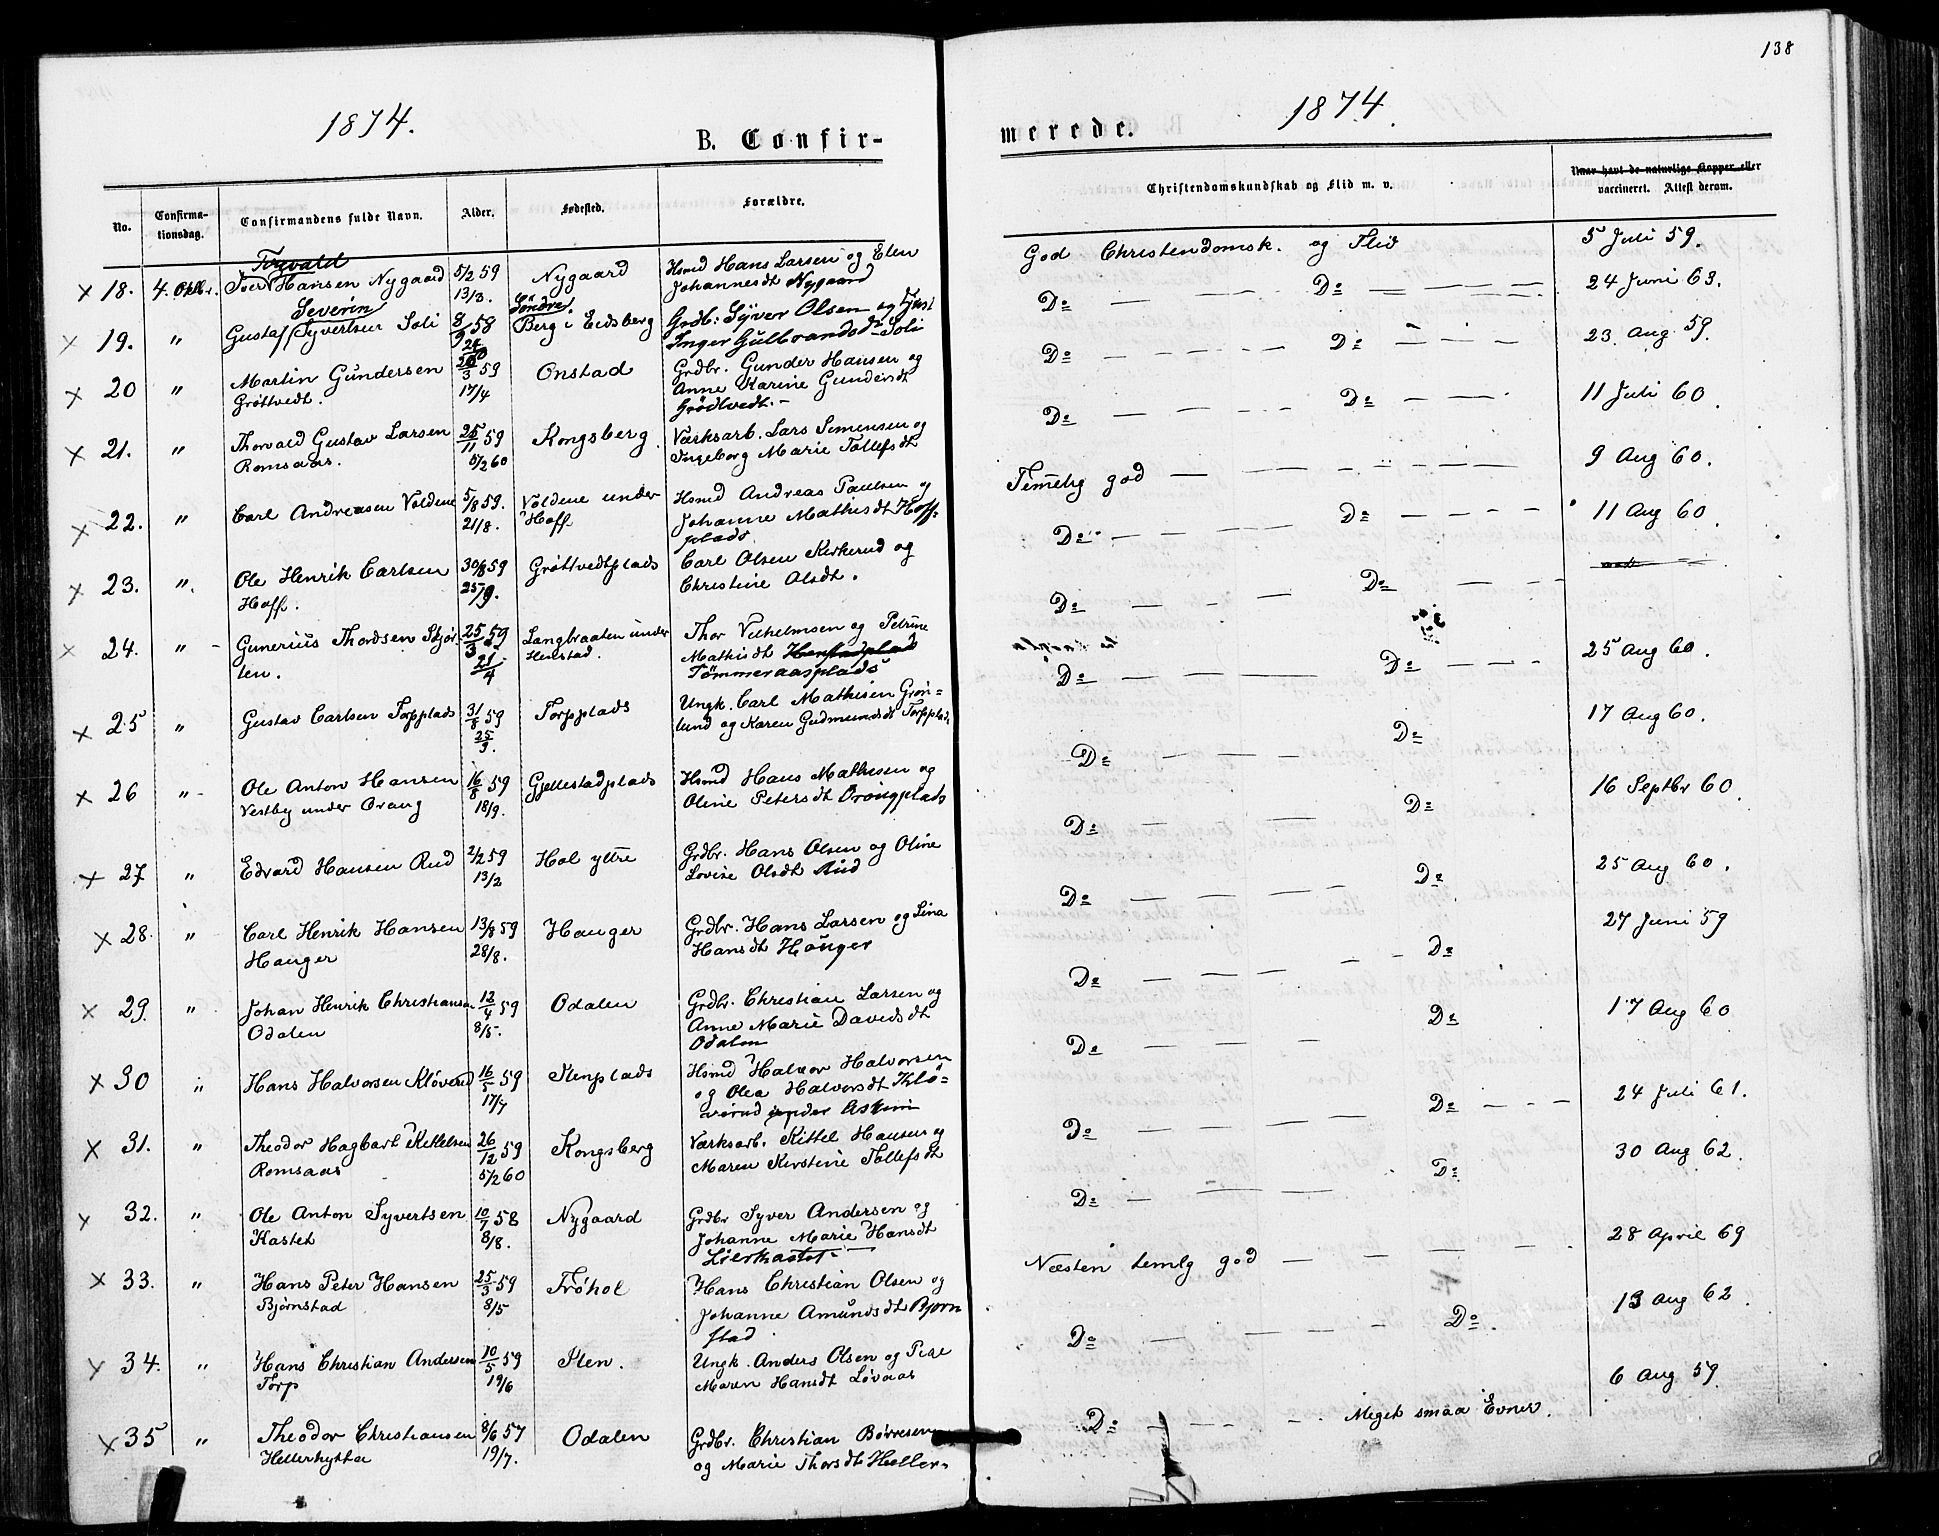 138
1874.
1874.
B. Confir-
merede.
No.
Confirma-
tionsdag.
Confirmandens fulde Navn.
Alder.
Fødested.
Forældre.
Christendomskundskab og Flid m. v.
Naar havt de naturlige Kopper eller
vaccineret. Attest derom.
Torvald
× 18. 4. Oktbr. Iver Hansen Nygaard 5/2 59 Nygaard Hsmd Hans Larsen og Elen
13/3. Johannesdt Nygaard
God Christendomsk. og Flid 5 Juli 59.
Severin
Søndre
× 19. " Gustaf Syvertsen Soli 8/9 58 Berg i Eidsberg Grdbr. Syver Olsen og
Inger Gulbrandsdr Soli
Do — — — Do — — — 24 Juni 63.
× 20 " Martin Gundersen 20/3 59 Onstad Grdbr. Gunder Hansen og
Grøttvedt. 17/4 Anne Karine Gundersdt
Grödtvedt. –
Do — — — Do — — — 23. Aug 59.
× 21. " Thorvald Gustav Larsen 25/11 59 Kongsberg. Værksarb. Lars Simensen og
Romsaas. 5/2 60 Ingeborg Marie Tollefsdt
Do — — — Do — — — 11 Juli 60.
× 22. " Carl Andreasen Voldene 5/8 59. Voldene under Hsmd Andreas Paulsen og
21/8. Hoff Johanne Mathisdt Hoff-
plads
Temelig god — — — 9 Aug 60.
× 23. " Ole Henrik Carlsen 30/8 59 Grøttvedtplads Carl Olsen Kirkerud og
Hoff. 25/9. Christine Olsdt.
Do — — — Do — — — 11 Aug 60.
× 24. " Gunerius Thordsen Skjør- 25/3 59 Langbraaten under Thor Vilhelmsen og Petrine
ten. 21/4 Henstad. Mathisdt Henstadplad
Tømmeraasplads
Do — — — Do — — —
× 25 " Gustav Carlsen Torpplads 31/8 59 Torpplads Ungk. Carl Mathisen Grøn-
25/9. lund og Karen Gudmundsdt Torpplads
Do — — — Do — — — 25 Aug 60.
× 26 " Ole Anton Hansen 16/8 59 Gjellestadplads Hsmd Hans Mathisen og
Vestby under Vrang 18/9. Oline Petersdt Vrangplads
Do — — — Do 17 Aug 60.
× 27 " Edvard Hansen Rud 2/2 59 Hol ytre Grdbr. Hans Olsen og Oline
13/2 Lovise Olsdt Rud
Do — — — Do 16 Septbr 60.
× 28. " Carl Henrik Hansen 13/8 59 Hauger Grdbr. Hans Larsen og Lina
Hauger 28/8. Hansdt Hauger
Do — — — Do 25 Aug 60.
× 29. " Johan Henrik Christiansen 12/4 59 Odalen Grdbr. Christian Larsen og
Odalen 8/5. Anne Marie Davidsdt
Odalen
Do — — — Do 27 Juni 59
× 30 " Hans Halvorsen Kløverud 16/5 59 Stenplads Hsmd Halvor Halvorsen
17/7 og Olea Halvorsdt Klø-
verud under Askim
Do — — — Do 17 Aug 60
× 31. " Theodor Hagbart Kittelsen 26/12 59 Kongsberg Værksarb. Kittel Hansen og
Romsaas 5/2 60 Maren Kirstine Tollefsdt
Do — — — Do — — — 24 Juli 61.
× 32. " Ole Anton Syvertsen 10/7 58 Nygaard Grdbr Syver Andersen og
Kastet 8/8. Johanne Marie Hansdt
Lierkastet –
Do — — — Do 30 Aug 62.
× 33. " Hans Peter Hansen 25/3 59 Frøhol Hans Christian Olsen og
Bjørnstad 8/5 Johanne Amundsdt Bjørn
stad
Næsten temlg god — — — 28 April 69
× 34. " Hans Christian Andersen 10/5 59 Sten. Ungk. Anders Olsen og Pige
Torp 19/6 Maren Hansdt Løvaas
Do — — — Do. 13 Aug 62.
× 35 " Theodor Christiansen 8/6 57 Odalen Grdbr. Christian Børresen
Hellerhytta 19/7. og Marie Thorsdt Heller-
Do — — — Meget smaa Evner. 6 Aug 59.